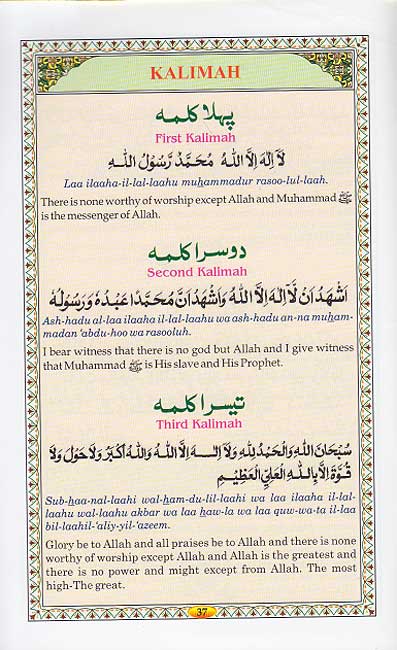 KALIMAH
پہلا کلمہ
First Kalimah
لَآ اِلٰهَ اِلَّا اللّٰهُ مُحَمَّدٌ رَّسُوْلُ اللّٰهِ
Laa ilaaha-il-lal-laahu muhammadur rasoo-lul-laah.
There is none worthy of worship except Allah and Muhammad ﷺ
is the messenger of Allah.
دوسرا کلمہ
Second Kalimah
اَشْهَدُ اَنْ لَّآ اِلٰهَ اِلَّا اللّٰهُ وَاَشْهَدُ اَنَّ مُحَمَّدًا عَبْدُهٗ وَرَسُوْلُهٗ
Ash-hadu al-laa ilaaha il-lal-laahu wa ash-hadu an-na muham-
madan ‘abdu-hoo wa rasooluh.
I bear witness that there is no god but Allah and I give witness
that Muhammad ﷺ is His slave and His Prophet.
تیسرا کلمہ
Third Kalimah
سُبْحَانَ اللّٰهِ وَالْحَمْدُ لِلّٰهِ وَلَآ اِلٰهَ اِلَّا اللّٰهُ وَاللّٰهُ اَكْبَرُ وَلَا حَوْلَ وَلَا
قُوَّةَ اِلَّا بِاللّٰهِ الْعَلِيِّ الْعَظِيْمِ
Sub-haa-nal-laahi wal-ham-du-lil-laahi wa laa ilaaha il-lal-
laahu wal-laahu akbar wa laa haw-la wa laa quw-wa-ta il-laa
bil-laahil-‘aliy-yil-‘azeem.
Glory be to Allah and all praises be to Allah and there is none
worthy of worship except Allah and Allah is the greatest and
there is no power and might except from Allah. The most
high-The great.
37